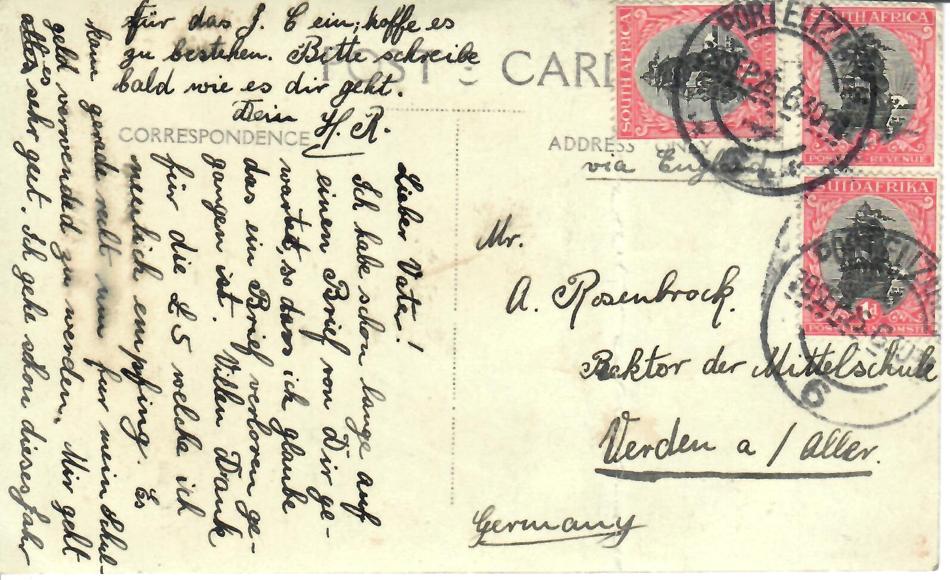 POST CARD
CORRESPONDENCE
ADDRESS ONLY
Lieber Vater!
Ich habe schon lange auf
einen Brief von Dir ge-
wartet, so dass ich glaube
das ein Brief verloren ge-
gangen ist. Vielen Dank
für die £5 welche ich
neulich empfing. Es
kam gerade recht um für mein Schul-
geld verwendet zu werden. Mir geht
es sehr gut. Ich gehe schon dieses Jahr
für das J. C ein; hoffe es
zu bestehen. Bitte schreibe
bald wie es dir geht.
Dein H. R.
via England
Mr.
A. Rosenbrock.
Rektor der Mittelschule
Verden a / Aller.
Germany
SOUTH AFRICA
SOUTH AFRICA
POSTAGE REVENUE
SUIDAFRIKA
1d
PORT ELIZ
PORT ELIZ
6